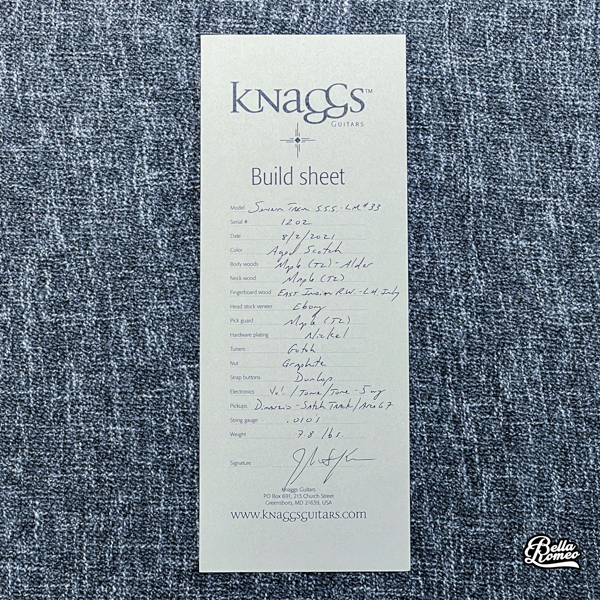 KNAGGS™
GUITARS
Build sheet
Model Severn Trem S.S.S. - LM#33
Serial # 1202
Date 8/2/2021
Color Aged Scotch
Body woods Maple (T2) - Alder
Neck wood Maple (T2)
Fingerboard wood EAST Indian R.W. - L.M. Inly
Head stock veneer Ebony
Pick guard Maple (T2)
Hardware plating Nickel
Tuners Gotoh
Nut Graphite
Strap buttons Dunlop
Electronics Vol / Tone / Tone - 5 way
Pickups Dimarzio - Satch Track / Area 67
String gauge .010's
Weight 7.8 lbs.
Signature
Knaggs Guitars
PO Box 691, 213 Church Street
Greensboro, MD 21639, USA
www.knaggsguitars.com
Bella
Romeo